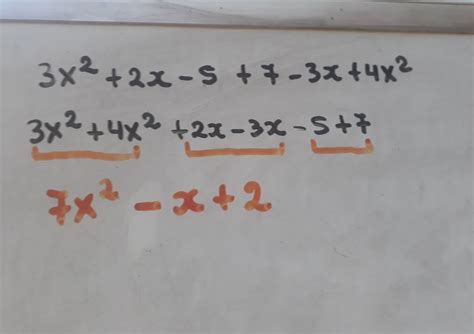 3x² + 2x - 5 + 7 - 3x + 4x²
3x² + 4x² + 2x - 3x - 5 + 7
7x² - x + 2